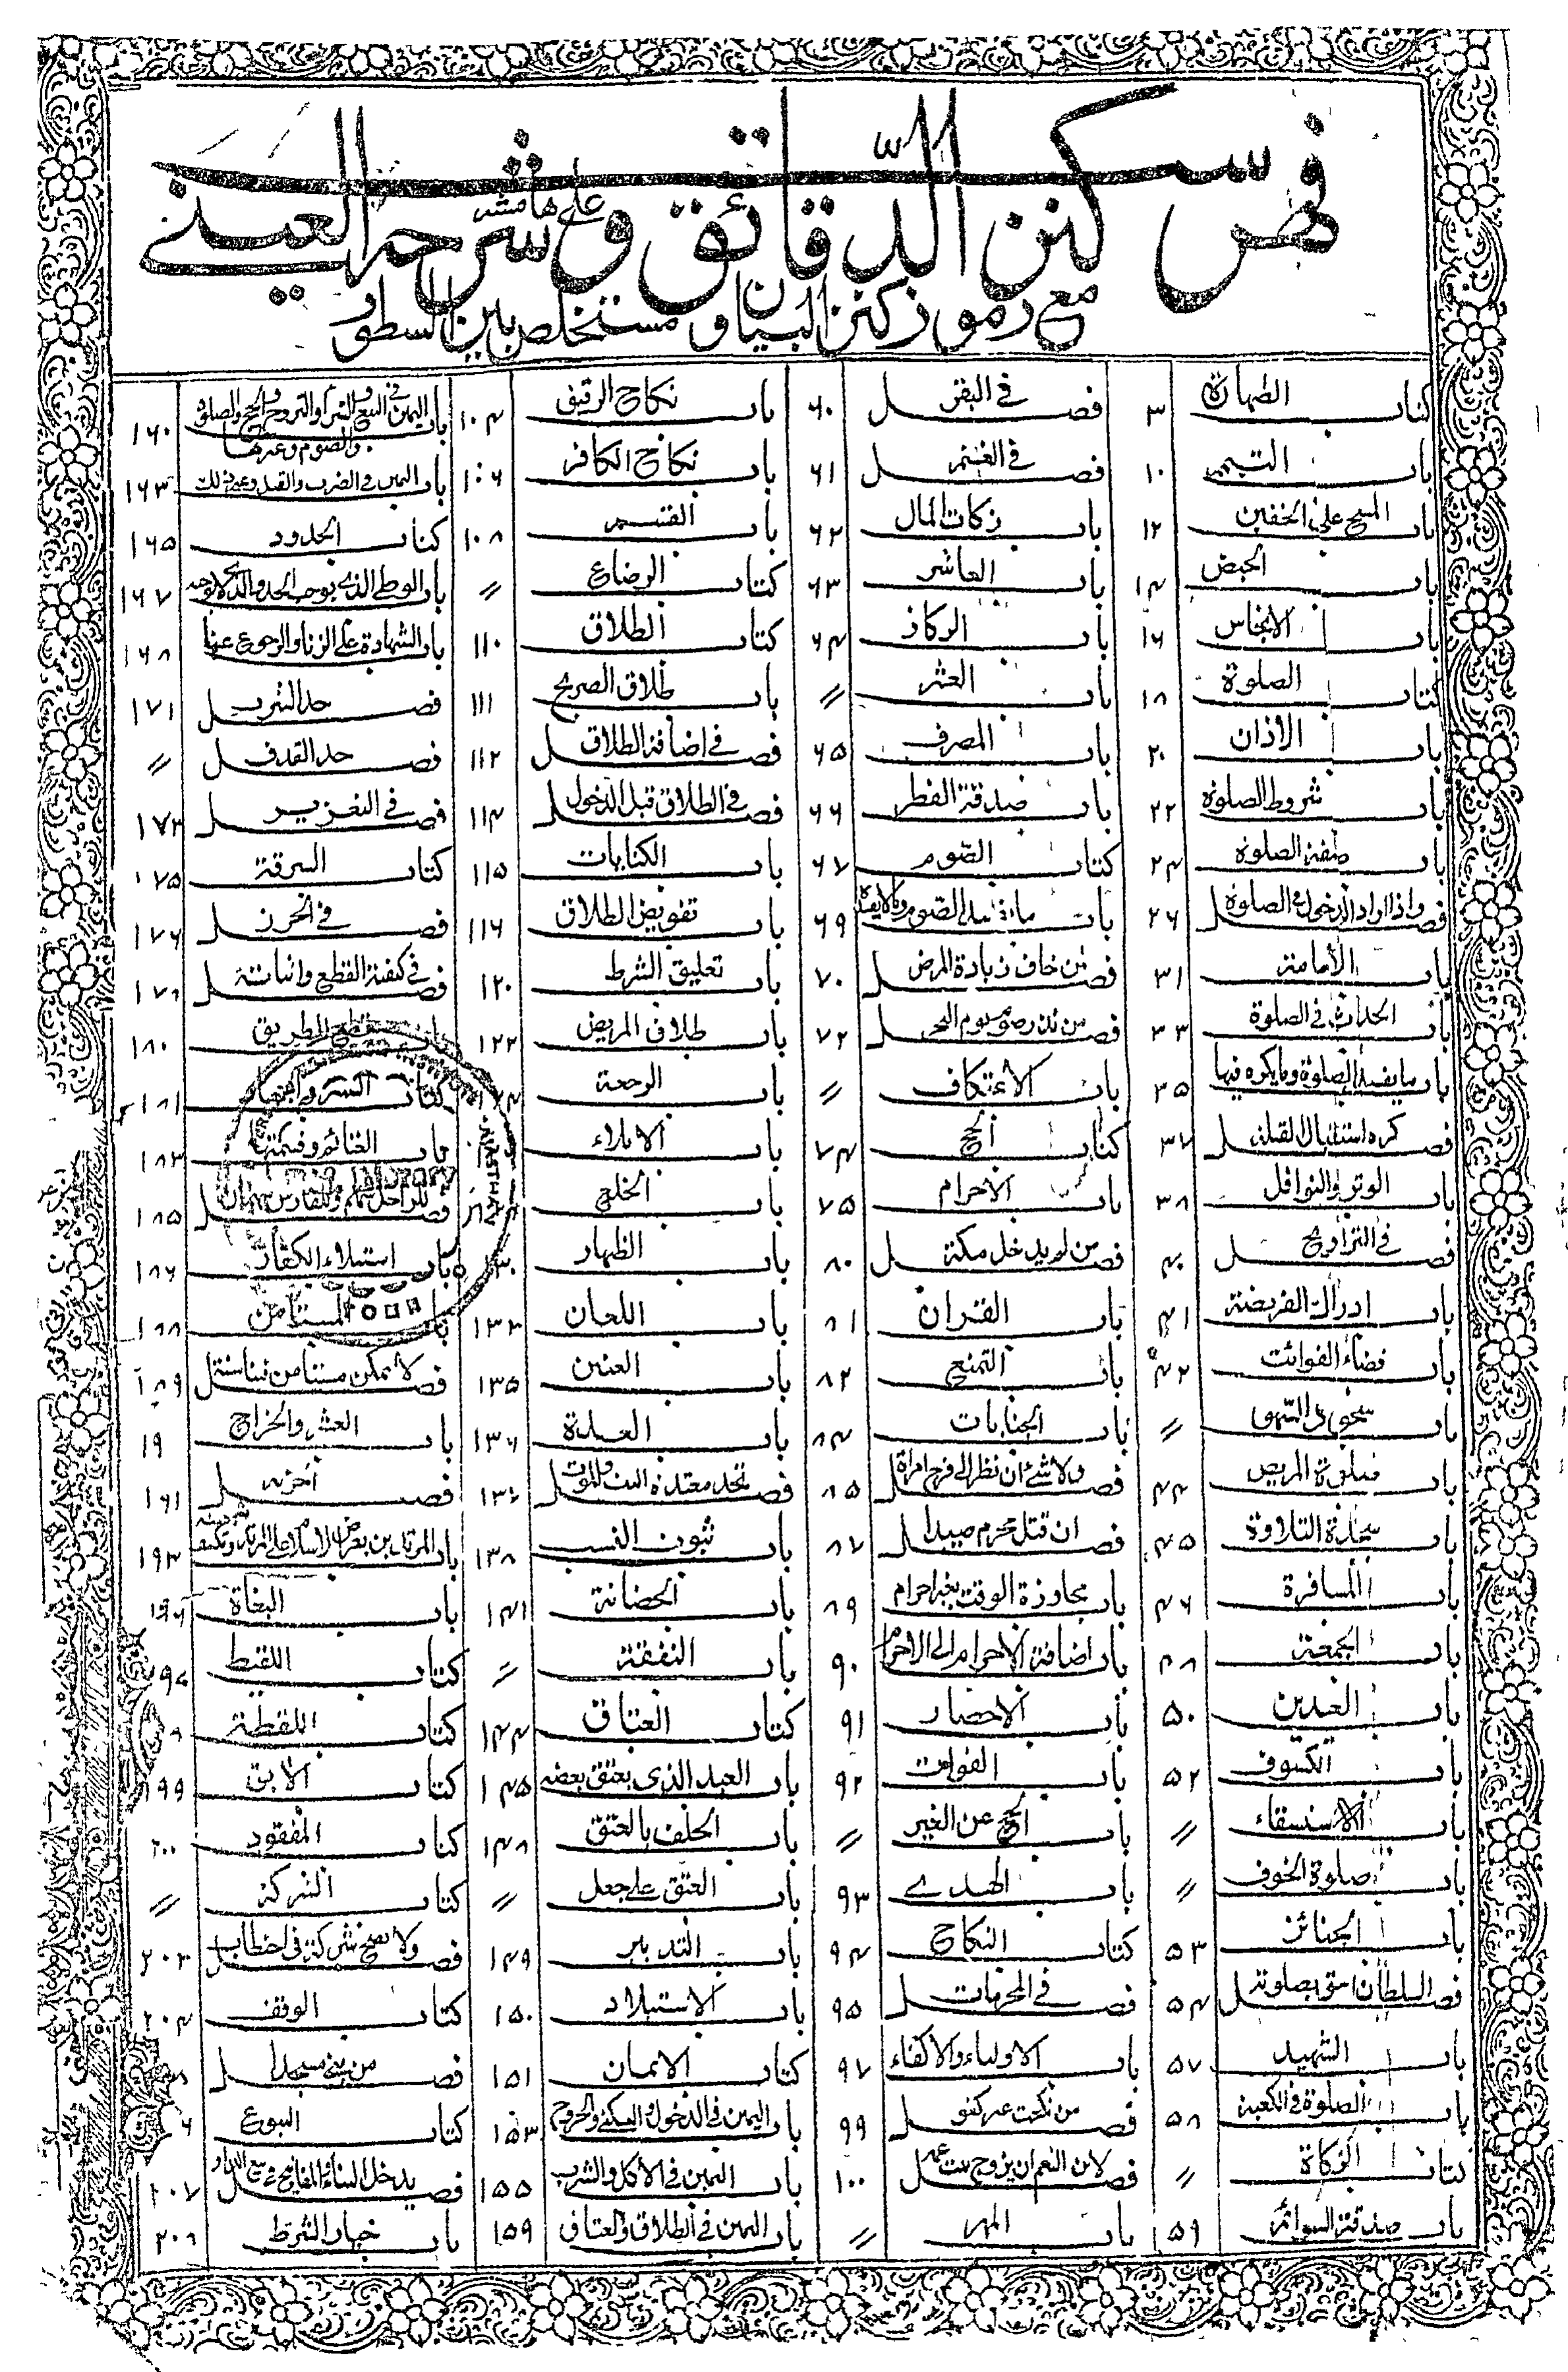 فهرس كنز الدقائق وعلى هامشه شرحه العيني
مع رموز كنز البيان ومستخلص بين السطور
كتاب الطهارة ٣
باب التيمم ١٠
باب المسح على الخفين ١٢
باب الحيض ١٤
باب الانجاس ١٦
كتاب الصلوة ١٨
باب الأذان ٢٠
باب شروط الصلوة ٢٢
باب صفة الصلوة ٢٤
فصل واذا اراد الدخول فى الصلوة ٢٦
باب الأمامة ٣١
باب الحدث فى الصلوة ٣٣
باب ما يفسد الصلوة وما يكره فيها ٣٥
فصل كره استقبال القبلة ٣٧
باب الوتر والنوافل ٣٨
فصل فى التراويح ٤٠
باب ادراك الفريضة ٤١
باب قضاء الفوائت ٤٢
باب سجود السهو 〃
باب صلوة المريض ٤٤
باب سجدة التلاوة ٤٥
باب المسافرة ٤٦
باب الجمعة ٤٨
باب العيدين ٥٠
باب الكسوف ٥٢
باب الاستسقاء 〃
باب صلوة الخوف 〃
باب الجنائز ٥٣
فصل السلطان احق بصلوته ٥٤
باب الشهيد ٥٧
باب الصلوة فى الكعبة ٥٨
كتاب الزكاة 〃
باب صدقة السوائم ٥٩
فصل فى البقر ٦٠
فصل فى الغنم ٦١
باب زكات المال ٦٢
باب العاشر ٦٣
باب الركاز ٦٤
باب العشر 〃
باب المصرف ٦٥
باب صدقة الفطر ٦٦
كتاب الصوم ٦٧
باب ما يفسد الصوم وما لا يفسده ٦٩
فصل من خاف زيادة المرض ٧٠
فصل من نذر صوم يوم النحر ٧٢
باب الاعتكاف 〃
كتاب الحج ٧٤
باب الاحرام ٧٥
فصل من لم يدخل مكة ٨٠
باب القران ٨١
باب التمتع ٨٢
باب الجنايات ٨٤
فصل ولا شئ ان نظر الى فرج امرأة ٨٥
فصل ان قتل محرم صيدا ٨٧
باب مجاوزة الوقت بغير احرام ٨٩
باب اضافة الاحرام الى الاحرام ٩٠
باب الاحصار ٩١
باب الفوات ٩٢
باب الحج عن الغير 〃
باب الهدے ٩٣
كتاب النكاح ٩٤
فصل فى المحرمات ٩٥
باب الاولياء والاكفاء ٩٧
فصل من نكحت غير كفو ٩٩
فصل لابن العم ان يزوج بنت عمه ١٠٠
باب المهر 〃
باب نكاح الرقيق ١٠٤
باب نكاح الكافر ١٠٦
باب القسم ١٠٨
كتاب الرضاع 〃
كتاب الطلاق ١١٠
باب طلاق الصريح ١١١
فصل فى اضافة الطلاق ١١٢
فصل فى الطلاق قبل الدخول ١١٤
باب الكنايات ١١٥
باب تفويض الطلاق ١١٦
باب تعليق الشرط ١٢٠
باب طلاق المريض ١٢٢
باب الرجعة
باب الايلاء
باب الخلع
باب الظهار
باب اللعان ١٣٣
باب العنين ١٣٥
باب العدة ١٣٦
فصل تحد معتدة البت والموت
باب ثبوت النسب ١٣٨
باب الحضانة ١٤١
باب النفقة 〃
كتاب العتاق ١٤٤
باب العبد الذى يعتق بعضه ١٤٥
باب الحلف بالعتق ١٤٨
باب العتق على جعل 〃
باب التدبير ١٤٩
باب الاستيلاد ١٥٠
كتاب الايمان ١٥١
باب اليمين فى الدخول والسكنى والخروج ١٥٣
باب اليمين فى الاكل والشرب ١٥٥
باب اليمين فى الطلاق والعتاق ١٥٩
باب اليمين فى البيع والشراء والتزوج والحج والصلوة والصوم وغيرها ١٦٠
باب اليمين فى الضرب والقتل وغير ذلك ١٦٣
كتاب الحدود ١٦٥
باب الوطى الذى يوجب الحد والذى لا يوجبه ١٦٧
باب الشهادة على الزنا والرجوع عنها ١٦٨
فصل حد الشرب ١٧١
فصل حد القذف 〃
فصل فى التعزير ١٧٣
كتاب السرقة ١٧٥
فصل فى الحرز ١٧٦
فصل فى كيفية القطع واثباته ١٧٨
باب قطع الطريق ١٨٠
كتاب السير ١٨١
باب الغنائم وقسمتها ١٨٣
فصل للراجل سهم وللفارس سهمان ١٨٥
باب استيلاء الكفار ١٨٦
باب المستأمن ١٨٨
فصل لا يمكن مستأمن فينا سنة ١٨٩
باب العشر والخراج ١٩
فصل
باب المرتدين ١٩٣
باب البغاة
كتاب اللقيط
كتاب اللقطة
كتاب الآبق ١٩٩
كتاب المفقود
كتاب الشركة 〃
فصل ولا تصح شركة فى احتطاب ٢٠٣
كتاب الوقف ٢٠٤
فصل من بنى مسجدا
كتاب البيوع
فصل يدخل البناء والمفاتيح فى بيع الدار ٢٠٧
باب خيار الشرط ٢٠٨